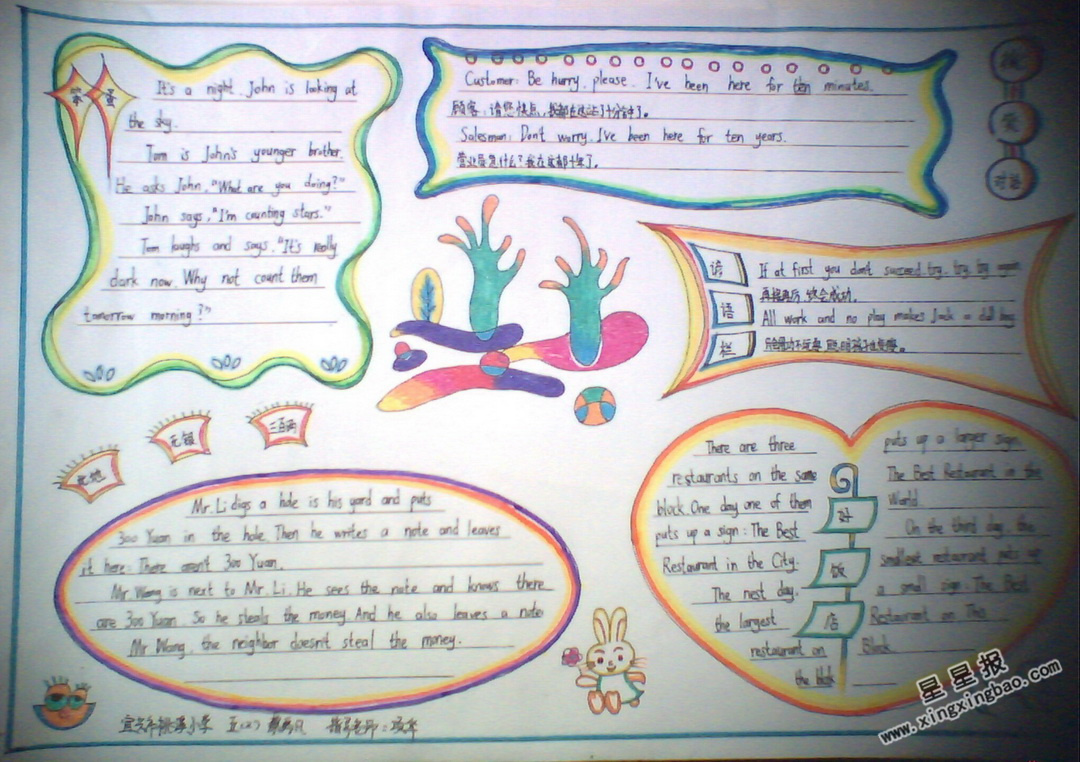 笨蛋
It's a night. John is looking at
the sky.
Tom is John's younger brother.
He asks John, "What are you doing?"
John says, "I'm counting stars."
Tom laughs and says, "It's really
dark now. Why not count them
tomorrow morning?"
Customer: Be hurry, please. I've been here for ten minutes.
顾客:请您快点,我都在这站了十分钟了。
Salesman: Don't worry. I've been here for ten years.
对话
谚语栏
If at first you don't succeed, try, try, try again.
再接再厉,终会成功。
All work and no play makes Jack a dull boy.
此地
无银
三百两
Mr. Li digs a hole is his yard and puts
300 Yuan in the hole. Then he writes a note and leaves
it here: There aren't 300 Yuan.
Mr Wang is next to Mr. Li. He sees the note and knows there
are 300 Yuan. So he steals the money. And he also leaves a note
Mr Wang, the neighbor doesn't steal the money.
好
饭
店
There are three
restaurants on the same
block. One day one of them
puts up a sign: The Best
Restaurant in the City.
The nest day,
the largest
restaurant on
the block
puts up a larger sign.
The Best Restaurant in the
World
On the third day, the
smallest restaurant puts up
a small sign: The Best
Restaurant on This
Block.
星星报
www.xingxingbao.com